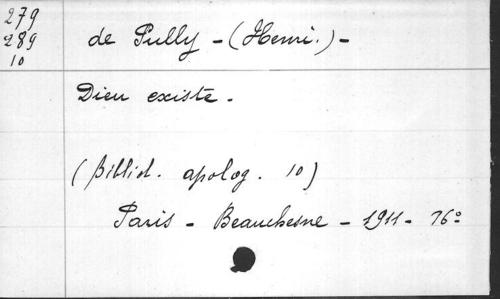 279
289
10
de Pully - (Henri.) -
Dieu existe.
(Biblid. apolog. 10)
Paris - Beauchesne - 1911 - 16º